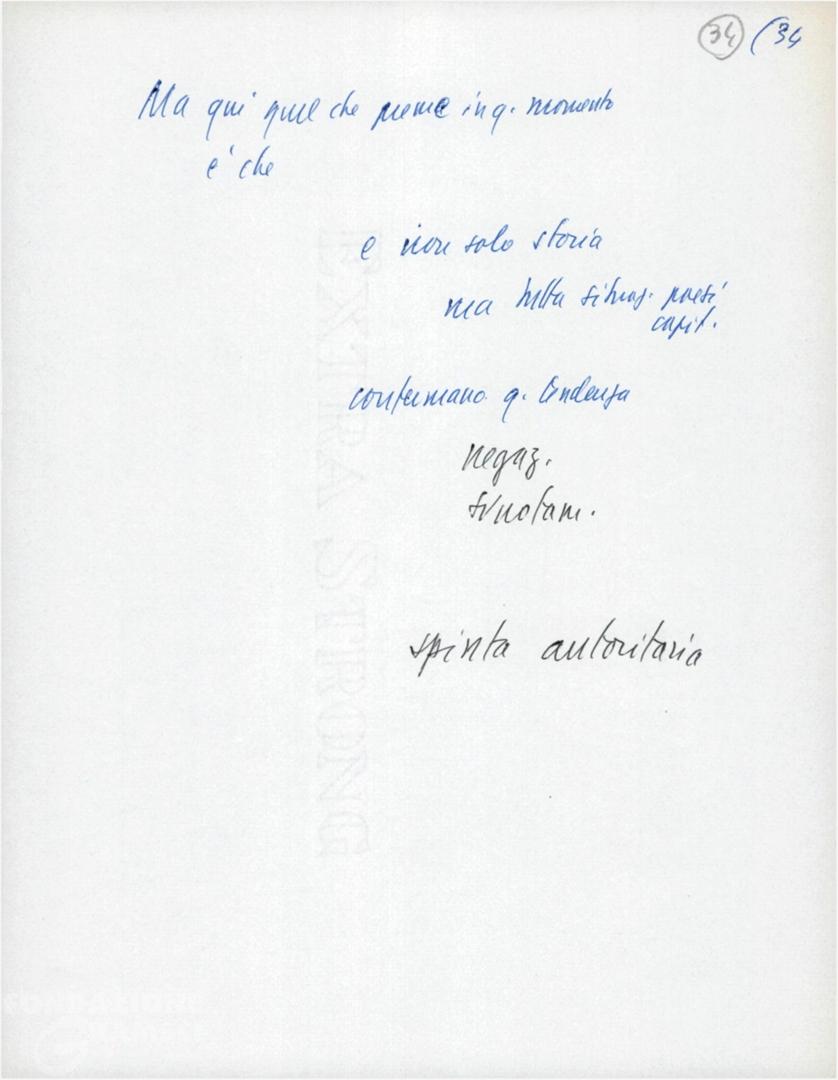 34 (34
Ma qui quel che preme in q. momento
è che
e non solo storia
ma tutta situaz. paesi
capit.
confermano q. tendenza
negaz.
EXTRA STRONG
spinta autoritaria
FONDAZIONE